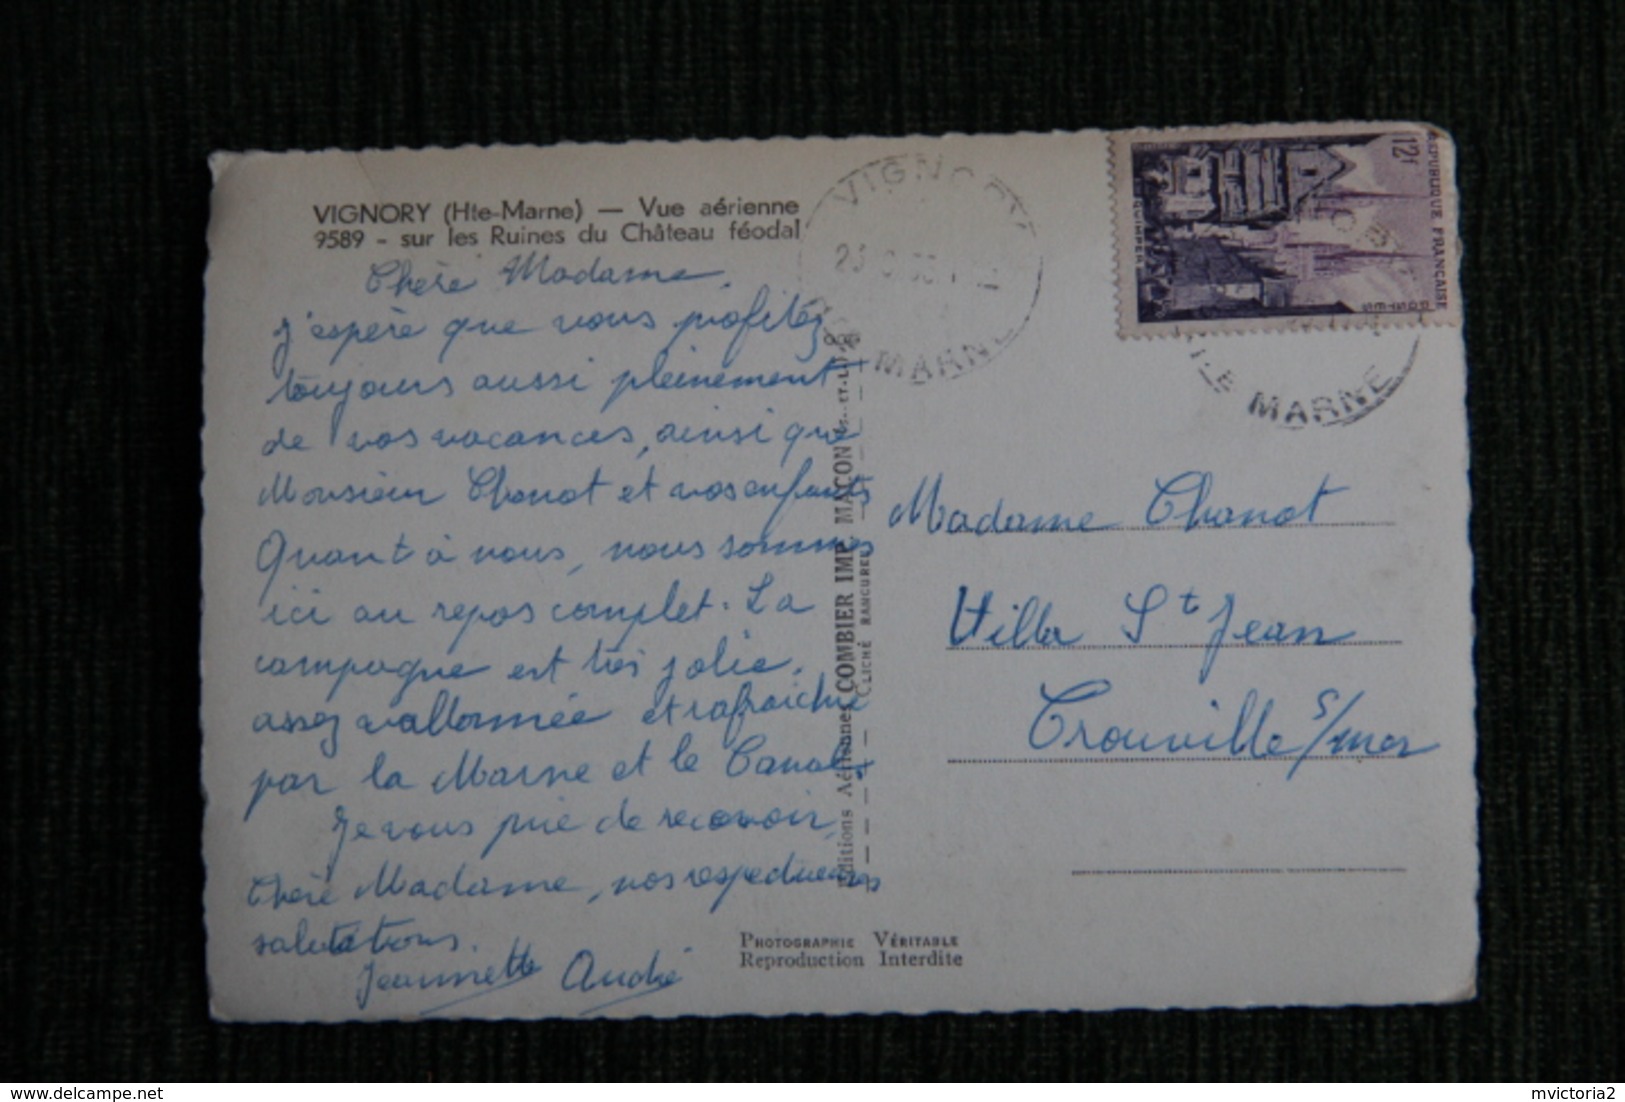 VIGNORY (Hte-Marne) — Vue aérienne
9589 - sur les Ruines du Château féodal
Chère Madame,
J'espère que vous profitez
toujours aussi pleinement
de vos vacances, ainsi que
Monsieur Chanot et vos enfants
Quant à nous, nous sommes
ici au repos complet. La
campagne est très jolie,
assez vallonnée et rafraichie
par la Marne et le Canal.
Je vous prie de recevoir,
Chère Madame, nos respectueuses
salutations.
Jeannette André
Editions Aériennes COMBIER IMP. MACON
CLICHÉ RANCUREL
PHOTOGRAPHIE VÉRITABLE
Reproduction Interdite
VIGNORY
MARNE
12f
REPUBLIQUE FRANÇAISE
QUIMPER
POSTES
HTE MARNE
Madame Chanot
Villa St Jean
Trouville s/mer
mvictoria2